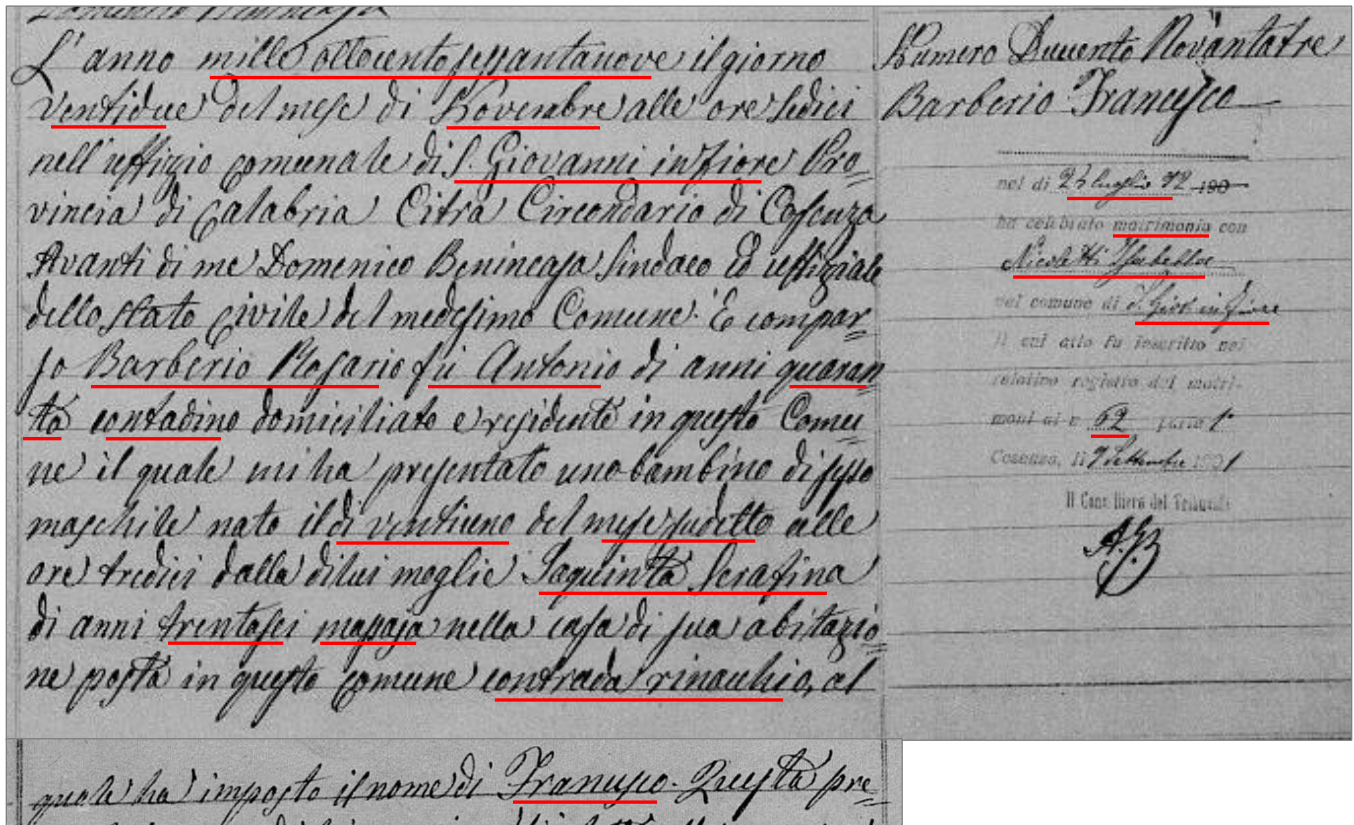 L'anno mille ottocento sessantanove il giorno
ventidue del mese di Novembre alle ore sedici
nell'uffizio comunale di S. Giovanni in Fiore Pro=
vincia di Calabria Citra Circondario di Cosenza
Avanti di me Domenico Benincasa Sindaco Ed uffiziale
dello stato civile del medesimo Comune. È compar=
so Barberio Rosario fu Antonio di anni quaran
ta contadino domiciliato e residente in questo Comu
ne il quale mi ha presentato uno bambino di sesso
maschile nato il di ventiuno del mese sudetto alle
ore tredici dalla di lui moglie Iaquinta Serafina
di anni trentasei massaja nella casa di sua abitazio=
ne posta in questo comune contrada rinacchio, al
quale ha imposto il nome di Francesco. Questa pre=
Numero Duecento Novantatre
Barberio Francesco
nel di 24 luglio 92 190
ha celebrato matrimonio con
Nicoletti Isabella
nel comune di S. Giov in Fiore
il cui atto fu inscritto nel
relativo registro dei matri-
moni al n 62 parte 1ª
Cosenza, li 9 Settembre 1901
Il Canc liere del Tribunale